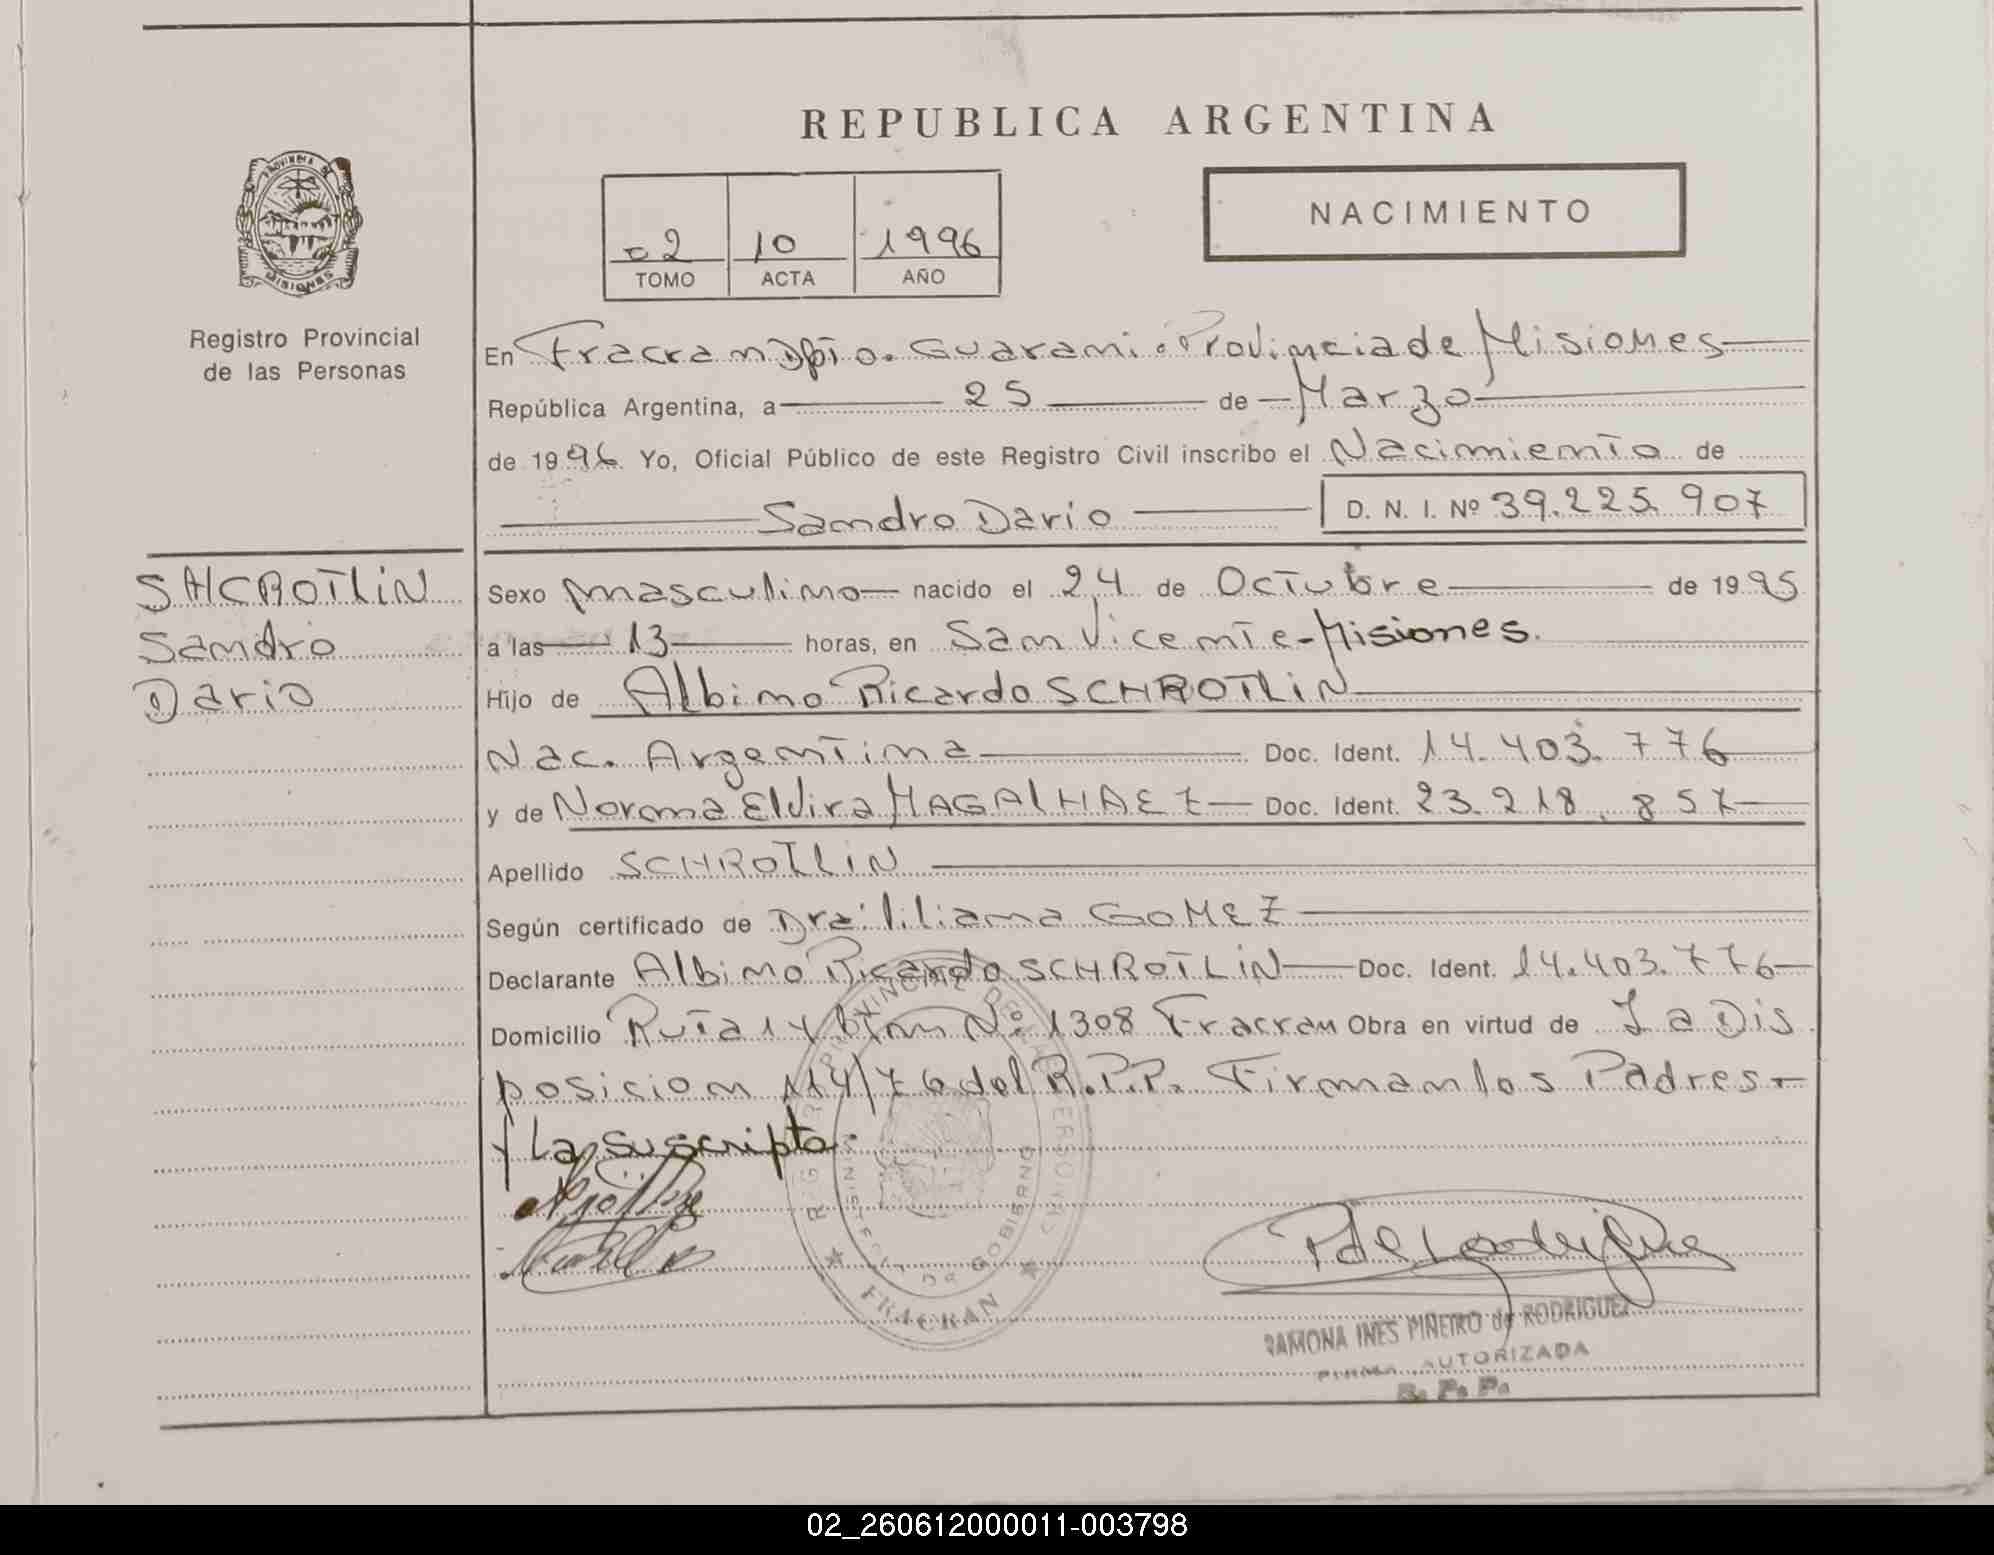 REPUBLICA ARGENTINA
PROVINCIA DE
MISIONES
02 10 1996
TOMO ACTA AÑO
NACIMIENTO
Registro Provincial
de las Personas
En Fracran Dpto. Guarani. Provincia de Misiones
República Argentina, a 25 de Marzo
de 1996 Yo, Oficial Público de este Registro Civil inscribo el Nacimiento de
Sandro Dario D. N. I. Nº 39.225.907
SHCROTLIN
Sandro
Dario
Sexo masculino nacido el 24 de Octubre de 1995
a las 13 horas, en San Vicente-Misiones.
Hijo de Albino Ricardo SCHROTLIN
Nac. Argentina Doc. Ident. 14.403.776
y de Norma Elvira MAGALHAEZ Doc. Ident. 23.218.857
Apellido SCHROTLIN
Según certificado de Dra. Liliana GOMEZ
Declarante Albino Ricardo SCHROTLIN Doc. Ident. 14.403.776
Domicilio Ruta 14 Nº 1308 Fracran Obra en virtud de La Dis
posicion 114/76 del R.P.P. Firman los Padres
y La suscripta.
FRACRAN
RAMONA INES PIÑEIRO de RODRIGUEZ
FIRMA AUTORIZADA
R. P. P.
02_260612000011-003798